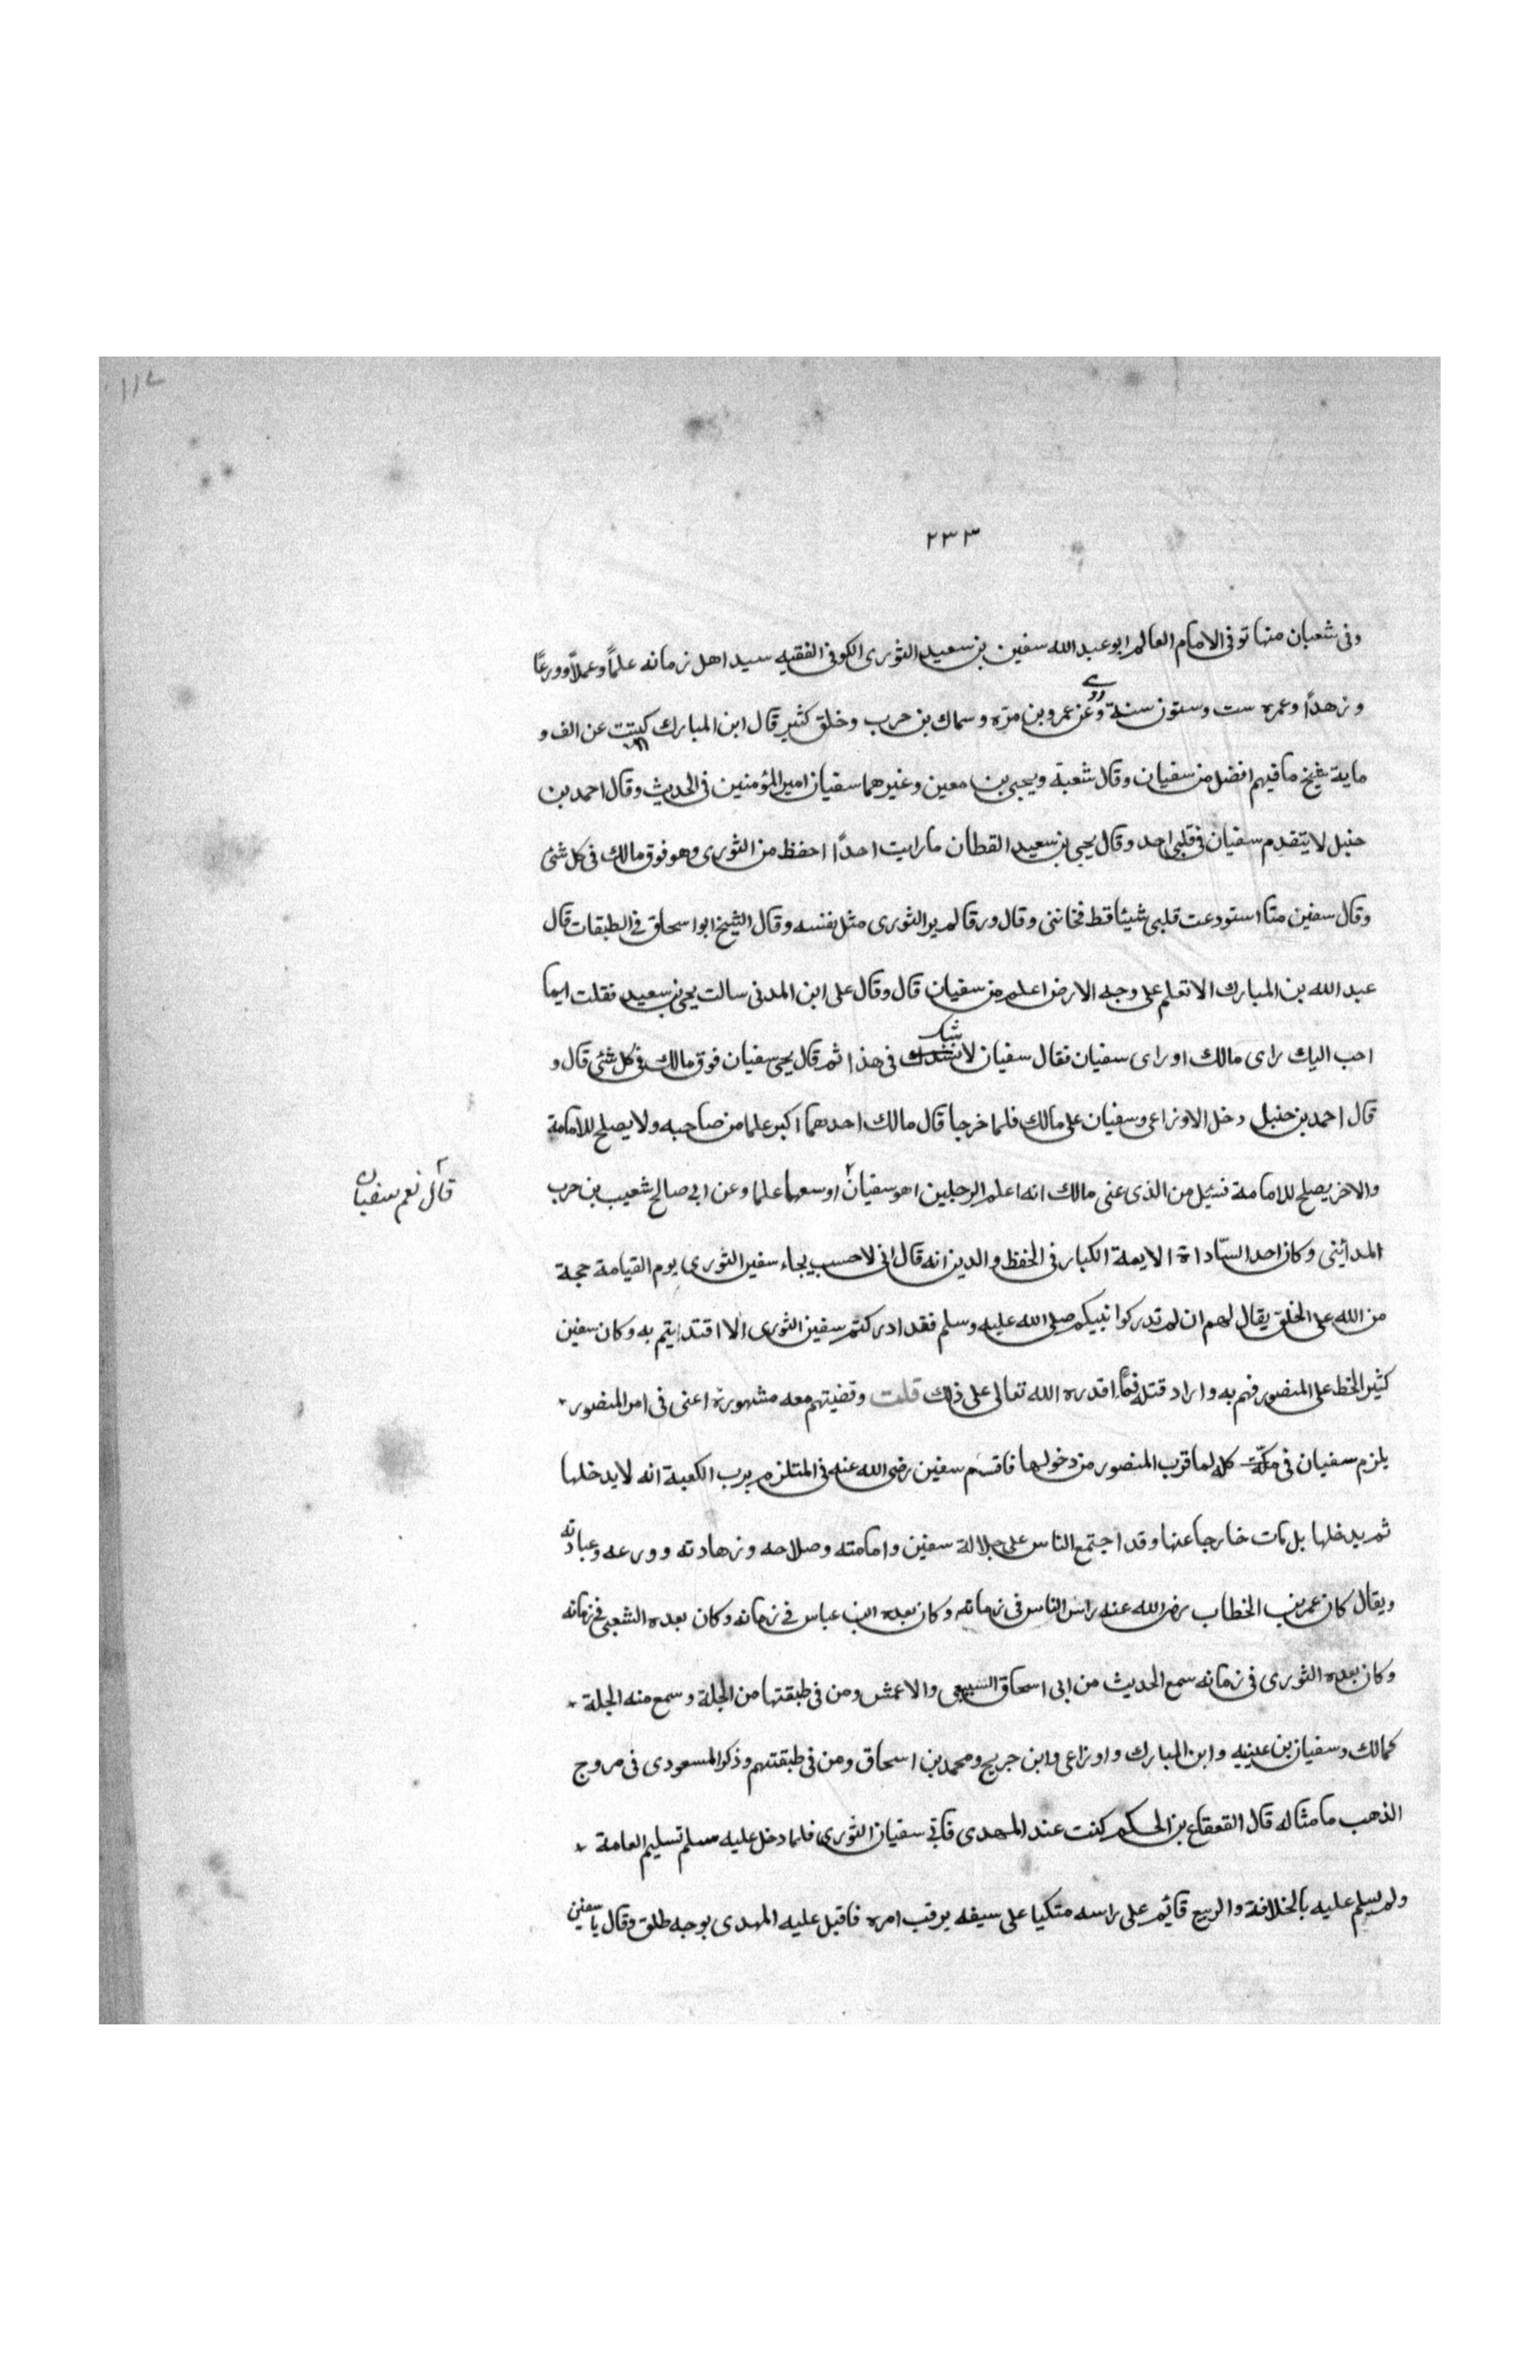 ١١٧
٢٣٣
وفى شعبان منها توفى الامام العالم ابو عبد الله سفين بن سعيد الثورى الكوفى الفقيه سيد اهل زمانه علمًا وعملًا وورعًا
وزهدًا وعمره ست وستون سنة روى وعن عمرو بن مره وسماك بن حرب وخلق كثير قال ابن المبارك كتبت عن الف و
ماية شيخ ما فيهم افضل من سفيان وقال شعبة ويحيى بن معين وغيرهما سفيان امير المؤمنين فى الحديث وقال احمد بن
حنبل لا يتقدم سفيان فى قلبى احد وقال يحيى بن سعيد القطان ما رايت احدًا احفظ من الثورى وهو فوق مالك فى كل شئ
وقال سفين ما استودعت قلبى شيئا قط فخاننى وقال ورقا لم ير الثورى مثل نفسه وقال الشيخ ابو اسحاق فى الطبقات قال
عبد الله بن المبارك الا تعلم على وجه الارض اعلم من سفيان قال وقال على ابن المدنى سالت يحيى بن سعيد فقلت ايما
احب اليك راى مالك او راى سفيان فقال سفيان لا شك فى هذا ثم قال يحيى سفيان فوق مالك فى كل شئ قال و
قال احمد بن حنبل دخل الاوزاعى وسفيان على مالك فلما خرجا قال مالك احدهما اكبر علما من صاحبه ولا يصلح للامامة
والاخر يصلح للامامة فسئل من الذى عنى مالك انه اعلم الرجلين اهو سفيان اوسعهما علما وعن ابى صالح شعيب بن حرب
قال نعم سفيان
المدائينى وكان احد السّاداة الايمة الكبار فى الحفظ والدين انه قال انى لاحسب يجاء سفين الثورى يوم القيامة حجة
من الله على الخلق يقال لهم ان لم تدركوا نبيكم صلى الله عليه وسلم فقد ادركتم سفين الثورى الا اقتدايتم به وكان سفين
كثير الحط على المنصور فهم به واراد قتله فما اقدره الله تعالى على ذلك قلت وقضيتهم معه مشهورة اعنى فى امر المنصور
يلزم سفيان فى مكّة كله لما قرب المنصور من دخولها فاقسم سفين رضى الله عنه فى الملتزم برب الكعبة انه لا يدخلها
ثم يدخلها بل مات خارجا عنها وقد اجتمع الناس على جلالة سفين وامامته وصلاحه وزهادته وورعه وعبادته
ويقال كان عمر بن الخطاب رضى الله عنه راس الناس فى زمانه وكان بعده ابن عباس فى زمانه وكان بعده الشعبى فى زمانه
وكان بعده الثورى فى زمانه سمع الحديث من ابى اسحاق السبيعى والاعمش ومن فى طبقتها من الجلة وسمع منه الجلة
كمالك وسفيان بن عيينه وابن المبارك واوزاعى وابن جريج ومحمد بن اسحاق ومن فى طبقتهم وذكر المسعودى فى مروج
الذهب ما مثاله قال القعقاع بن الحكم كنت عند المهدى فاتى سفيان الثورى فلما دخل عليه سلم تسليم العامة
ولم يسلم عليه بالخلافة والربيع قايم على راسه متكيا على سيفه يرقب امره فاقبل عليه المهدى بوجه طلق وقال يا سفين